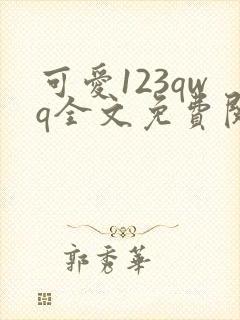 可愛123qw
q全文免費閱
郭秀華